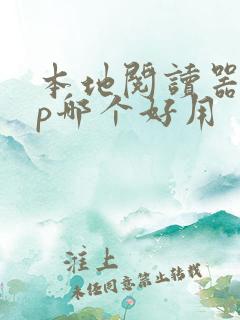 本地閱讀器
p哪个好用
淮上
未经同意禁止转载